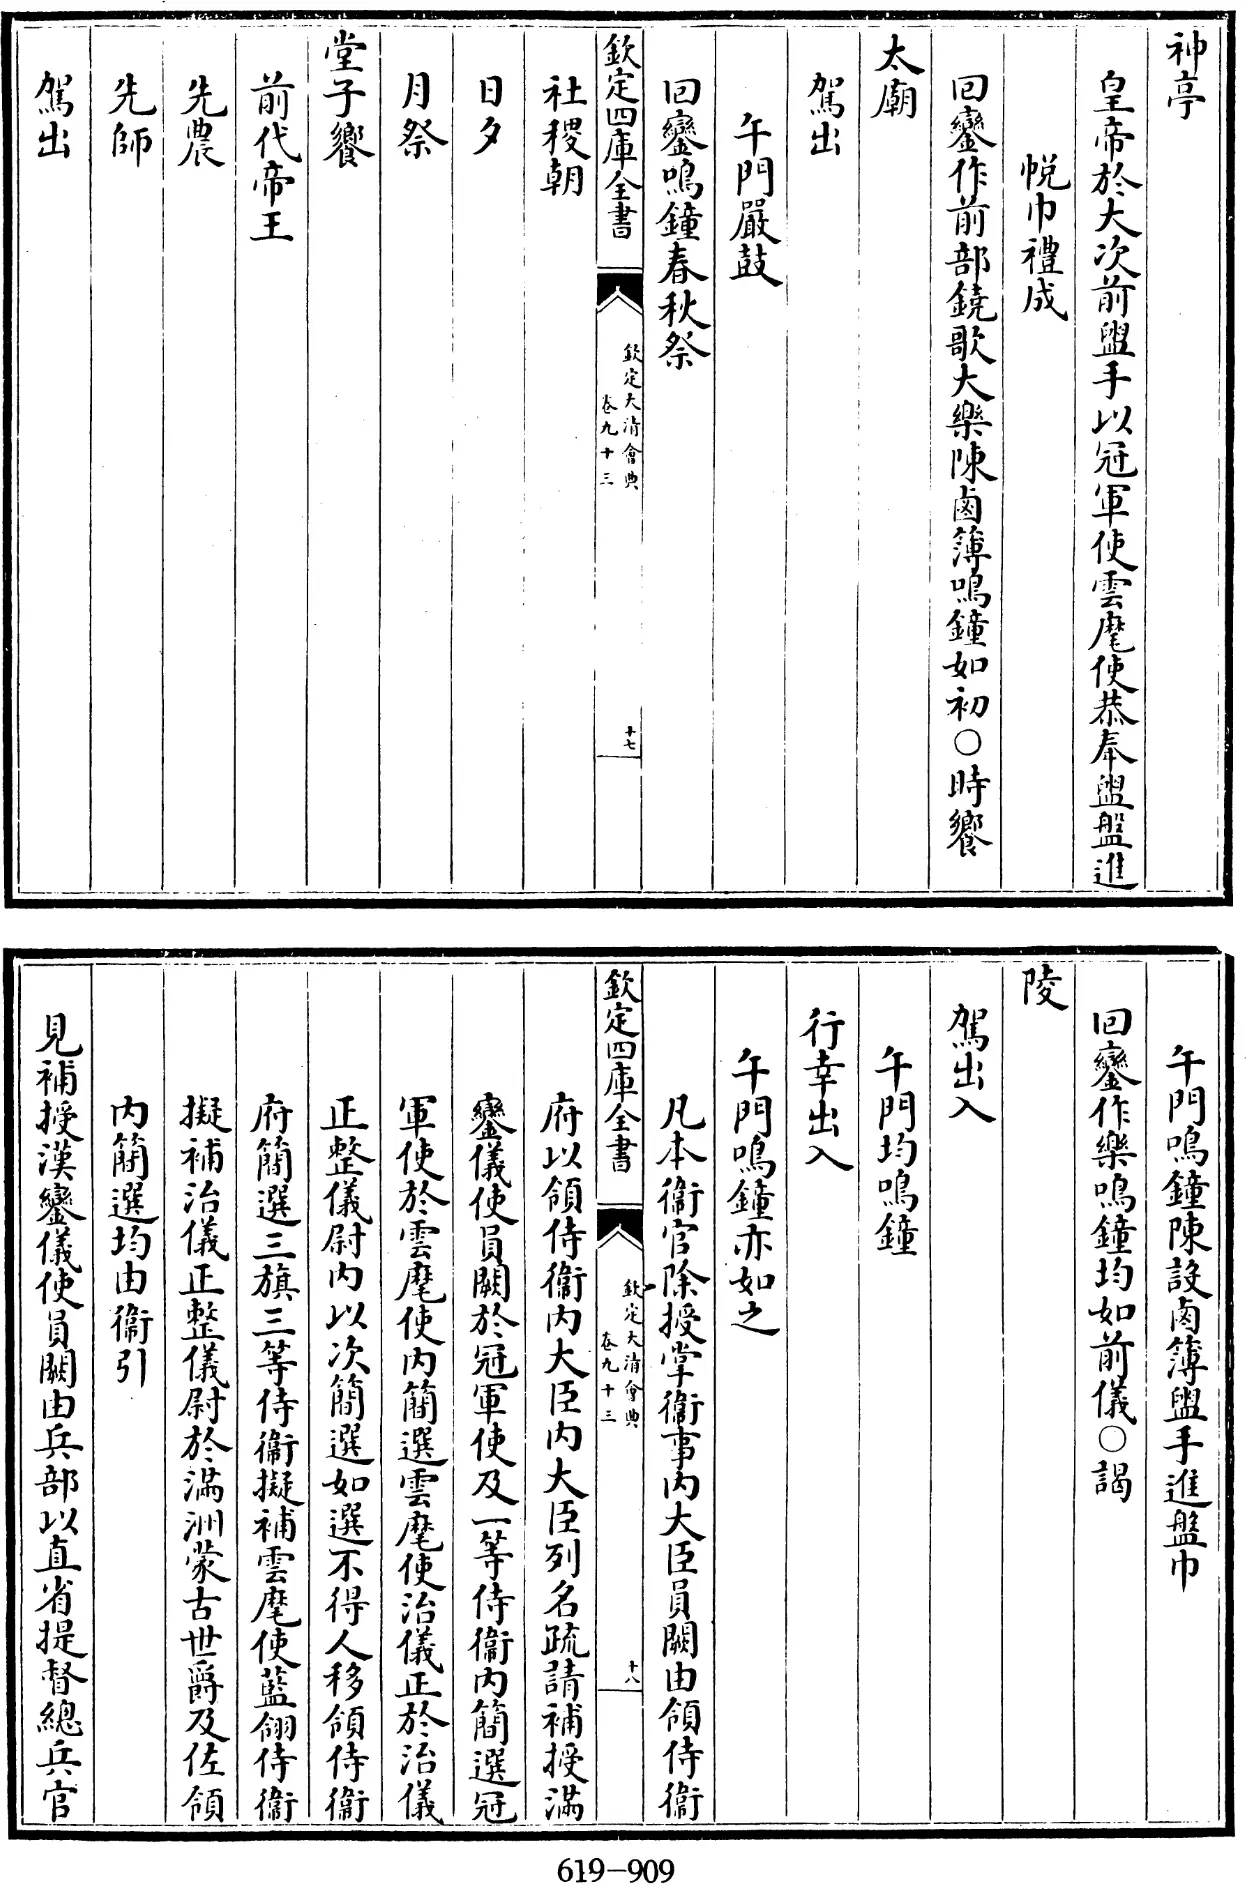 神亭
皇帝於大次前盥手以冠軍使雲麾使恭奉盥盤進
帨巾禮成
回鑾作前部鐃歌大樂陳鹵簿鳴鐘如初○時饗
太廟
駕出
午門嚴鼓
回鑾鳴鐘春秋祭
欽定四庫全書
欽定大清會典
卷九十三
十七
社稷朝
日夕
月祭
堂子饗
前代帝王
先農
先師
駕出
午門鳴鐘陳設鹵簿盥手進盤巾
回鑾作樂鳴鐘均如前儀○謁
陵
駕出入
午門均鳴鐘
行幸出入
午門鳴鐘亦如之
凡本衞官除授掌衞事內大臣員闕由領侍衞
欽定四庫全書
欽定大清會典
卷九十三
十八
府以領侍衞內大臣內大臣列名疏請補授滿
鑾儀使員闕於冠軍使及一等侍衞內簡選冠
軍使於雲麾使內簡選雲麾使治儀正於治儀
正整儀尉內以次簡選如選不得人移領侍衞
府簡選三旗三等侍衞擬補雲麾使藍翎侍衞
擬補治儀正整儀尉於滿洲蒙古世爵及佐領
內簡選均由衞引
見補授漢鑾儀使員闕由兵部以直省提督總兵官
619-909